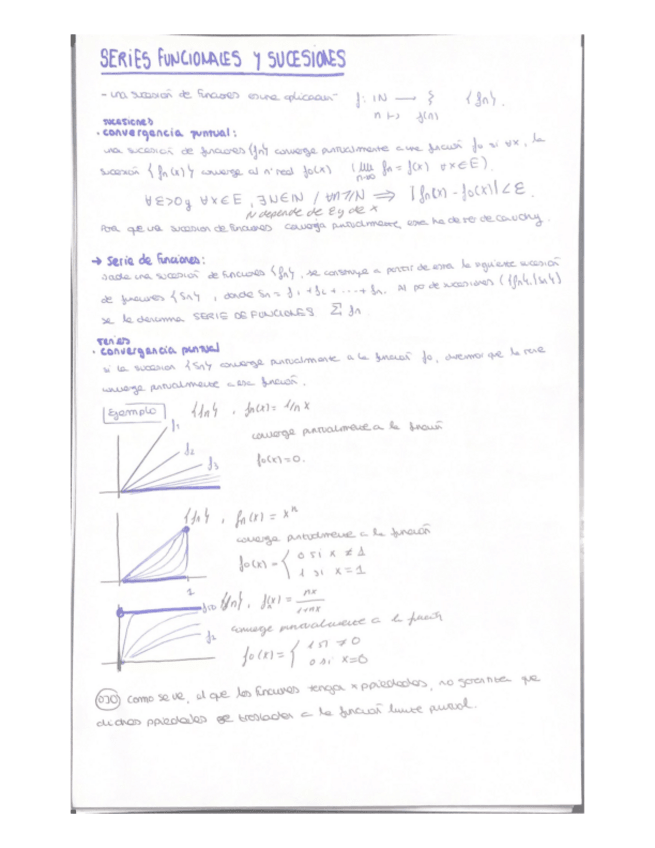 SERIES FUNCIONALES Y SUCESIONES
- una sucesión de funciones es una aplicación f: IN → F {fn}.
n ↦ f(n)
sucesiones
· convergencia puntual:
una sucesión de funciones {fn} converge puntualmente a una función fo si ∀x, la
sucesión {fn(x)} converge al nº real fo(x) (lim n→∞ fn = f(x) ∀x∈E).
∀ε>0 y ∀x∈E, ∃N∈IN / ∀n≥N ⇒ |fn(x) - fo(x)| < ε.
N depende de ε y de x
Para que una sucesión de funciones converja puntualmente, esta ha de ser de cauchy.
→ Serie de funciones:
dada una sucesión de funciones {fn}, se construye a partir de esta la siguiente sucesión
de funciones {Sn}, donde Sn = f1 + f2 + ... + fn. Al par de sucesiones ({fn},{Sn})
se le denomina SERIE DE FUNCIONES Σ fn
series
· convergencia puntual
si la sucesión {Sn} converge puntualmente a la función fo, diremos que la serie
converge puntualmente a esa función.
Ejemplo {fn}, fn(x) = 1/n x
f1
converge puntualmente a la función
f2
f3
fo(x) = 0.
{fn}, fn(x) = x^n
converge puntualmente a la función
fo(x) = { 0 si x ≠ 1
1 si x = 1
1
{fn}, fn(x) = nx/1+nx
f2
converge puntualmente a la función
fo(x) = { 1 si ≠ 0
0 si x=0
OJO Como se ve, el que las funciones tengan x propiedades, no garantiza que
dichas propiedades se trasladen a la función límite puntual.